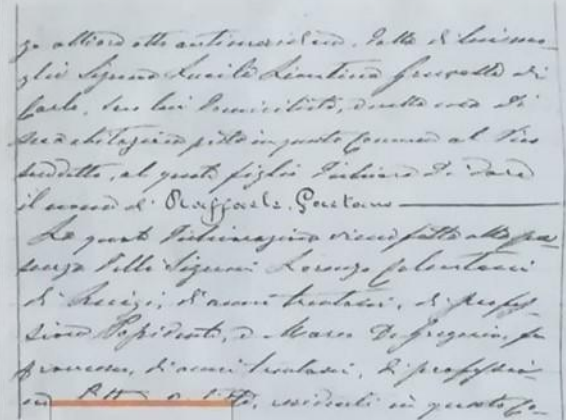 ore otto antimeridiane, dalla di lui mo-
glie Signora Lucilla Leontina di
Carlo, seco lui domiciliata, nella casa di
sua abitazione posta in questo Comune al Vico
suddetto, al quale figlio dichiara di dare
il nome di Raffaele, Gaetano
La quale dichiarazione viene fatta alla pre-
senza delli Signori Lorenzo
di Luigi, di anni trentasei, di profes-
sione Possidente, e Marco De Gregorio, fu
Francesco, di anni trentasei, di professio-
ne residenti in questo Co-